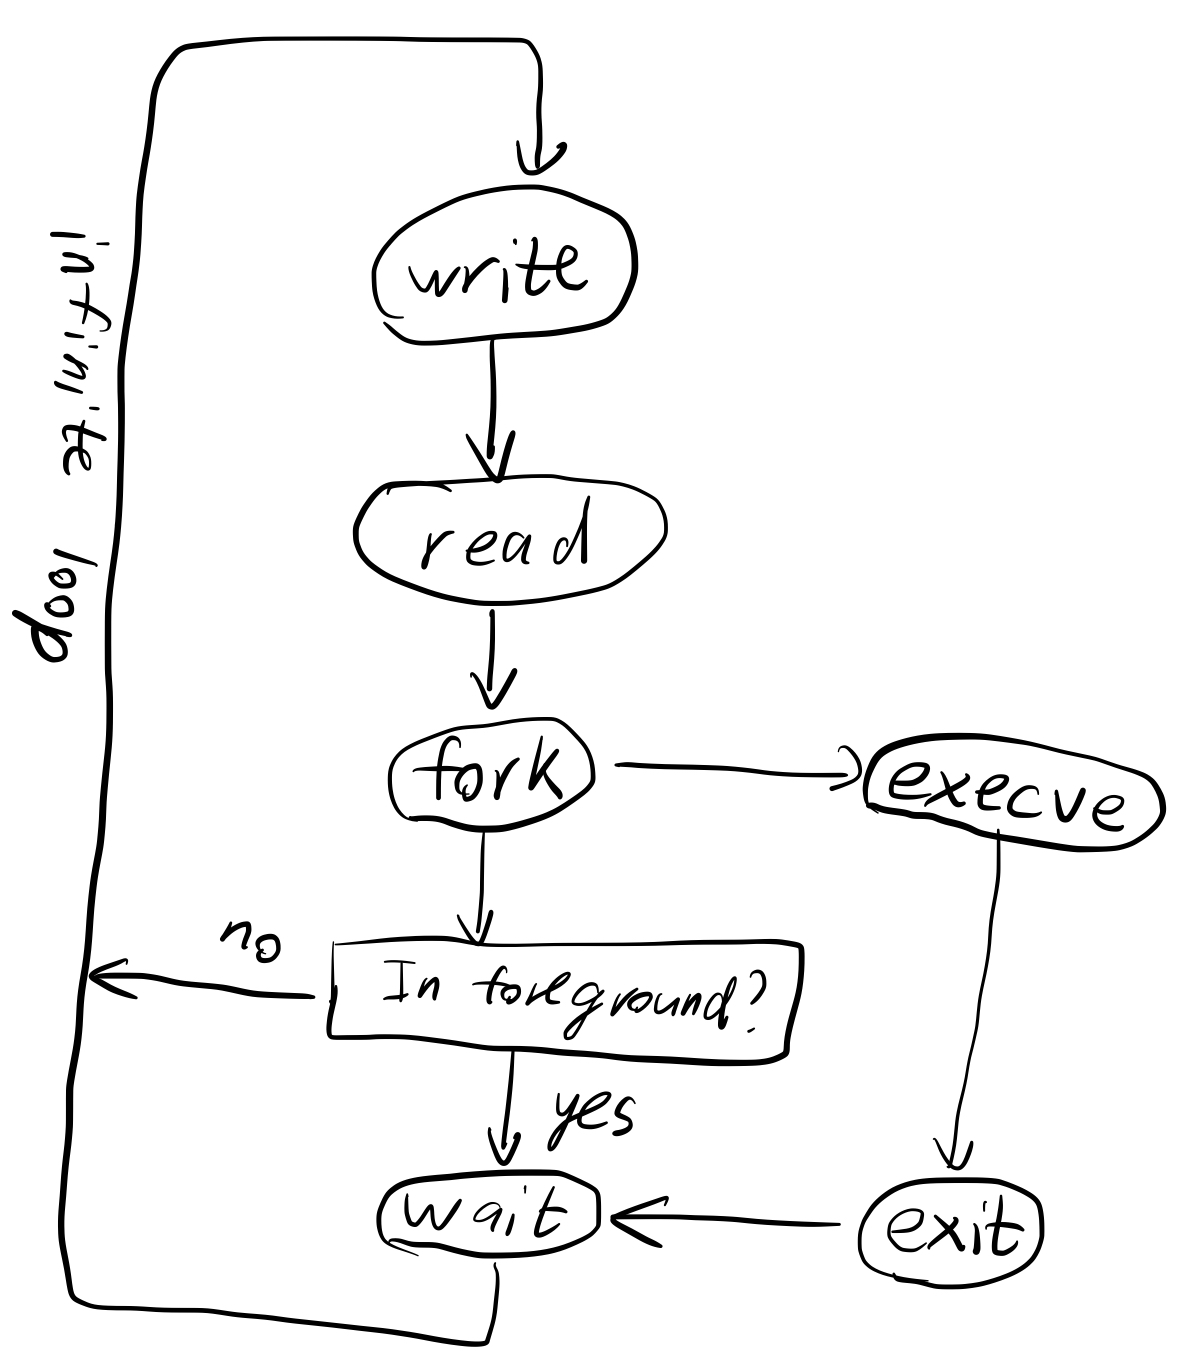 write
infinite loop
read
fork
execve
no
In foreground?
yes
wait
exit